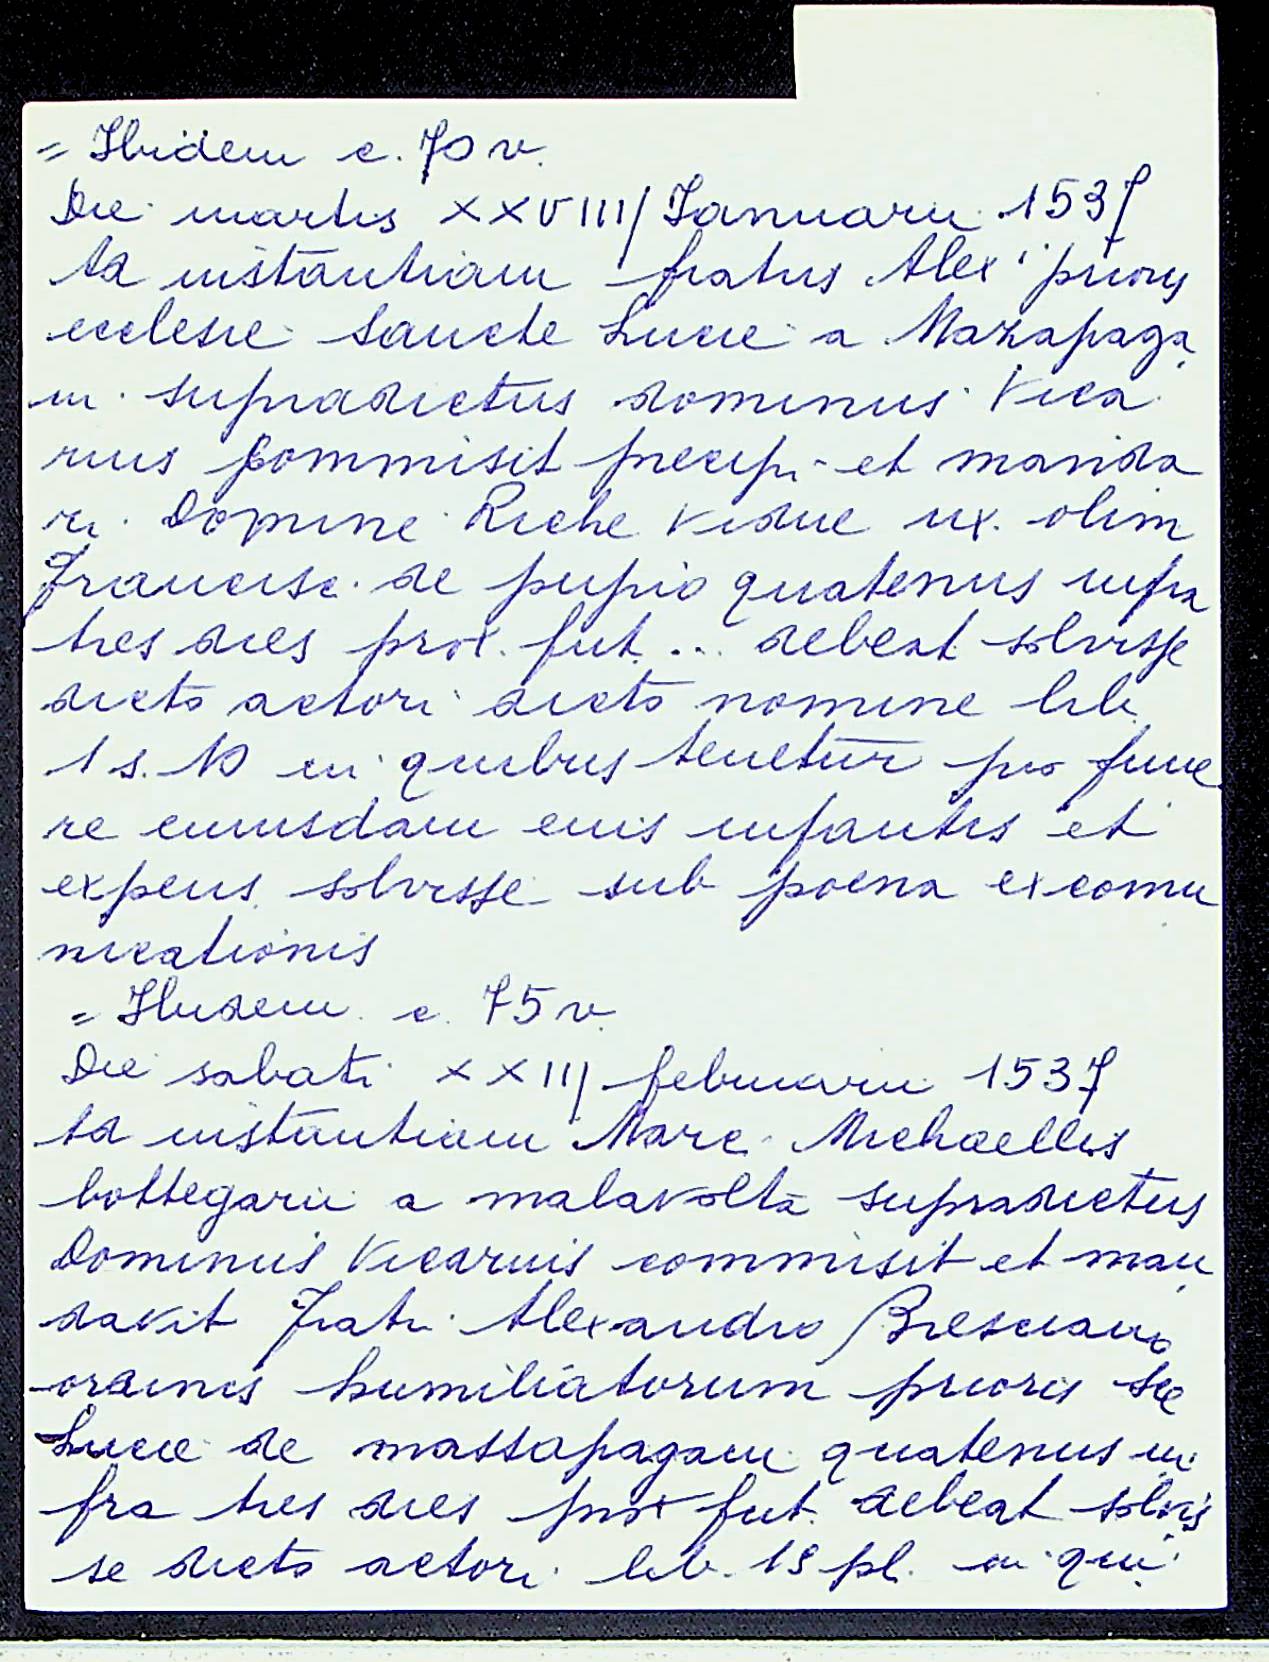 = Ibidem c. 70 v.
Die martis XXVIIIJ Januarii 1537
Ad instãntiam fratris Alex. prioris
ecclesie Sancte Lucie a Mazapaga
ni supradictus dominus Vica
rius commisit precipi et manda
ri Domine Riche vidue ux. olim
Francisc. de pupio quatenus infra
tres dies prox. fut. ... debeat solvisse
dicto actori dicto nomine lib.
1 s. 10 in quibus tenetur pro fune
re cuiusdam eius infantis et
expens. solvisse sub poena excomu
nicationis
= Ibidem c. 75 v.
Die sabati XXIIJ februarii 1537
Ad instãntiam Marc. Michaellis
bottegarii a malavolta supradictus
Dominus Vicarius commisit et man
davit Fratri Alexandro Bresciano
ordinis humiliatorum prioris Sce
Lucie de massapagani quatenus in
fra tres dies prox fut. debeat solvis
se dicto actori lib. 19 pl. in qui